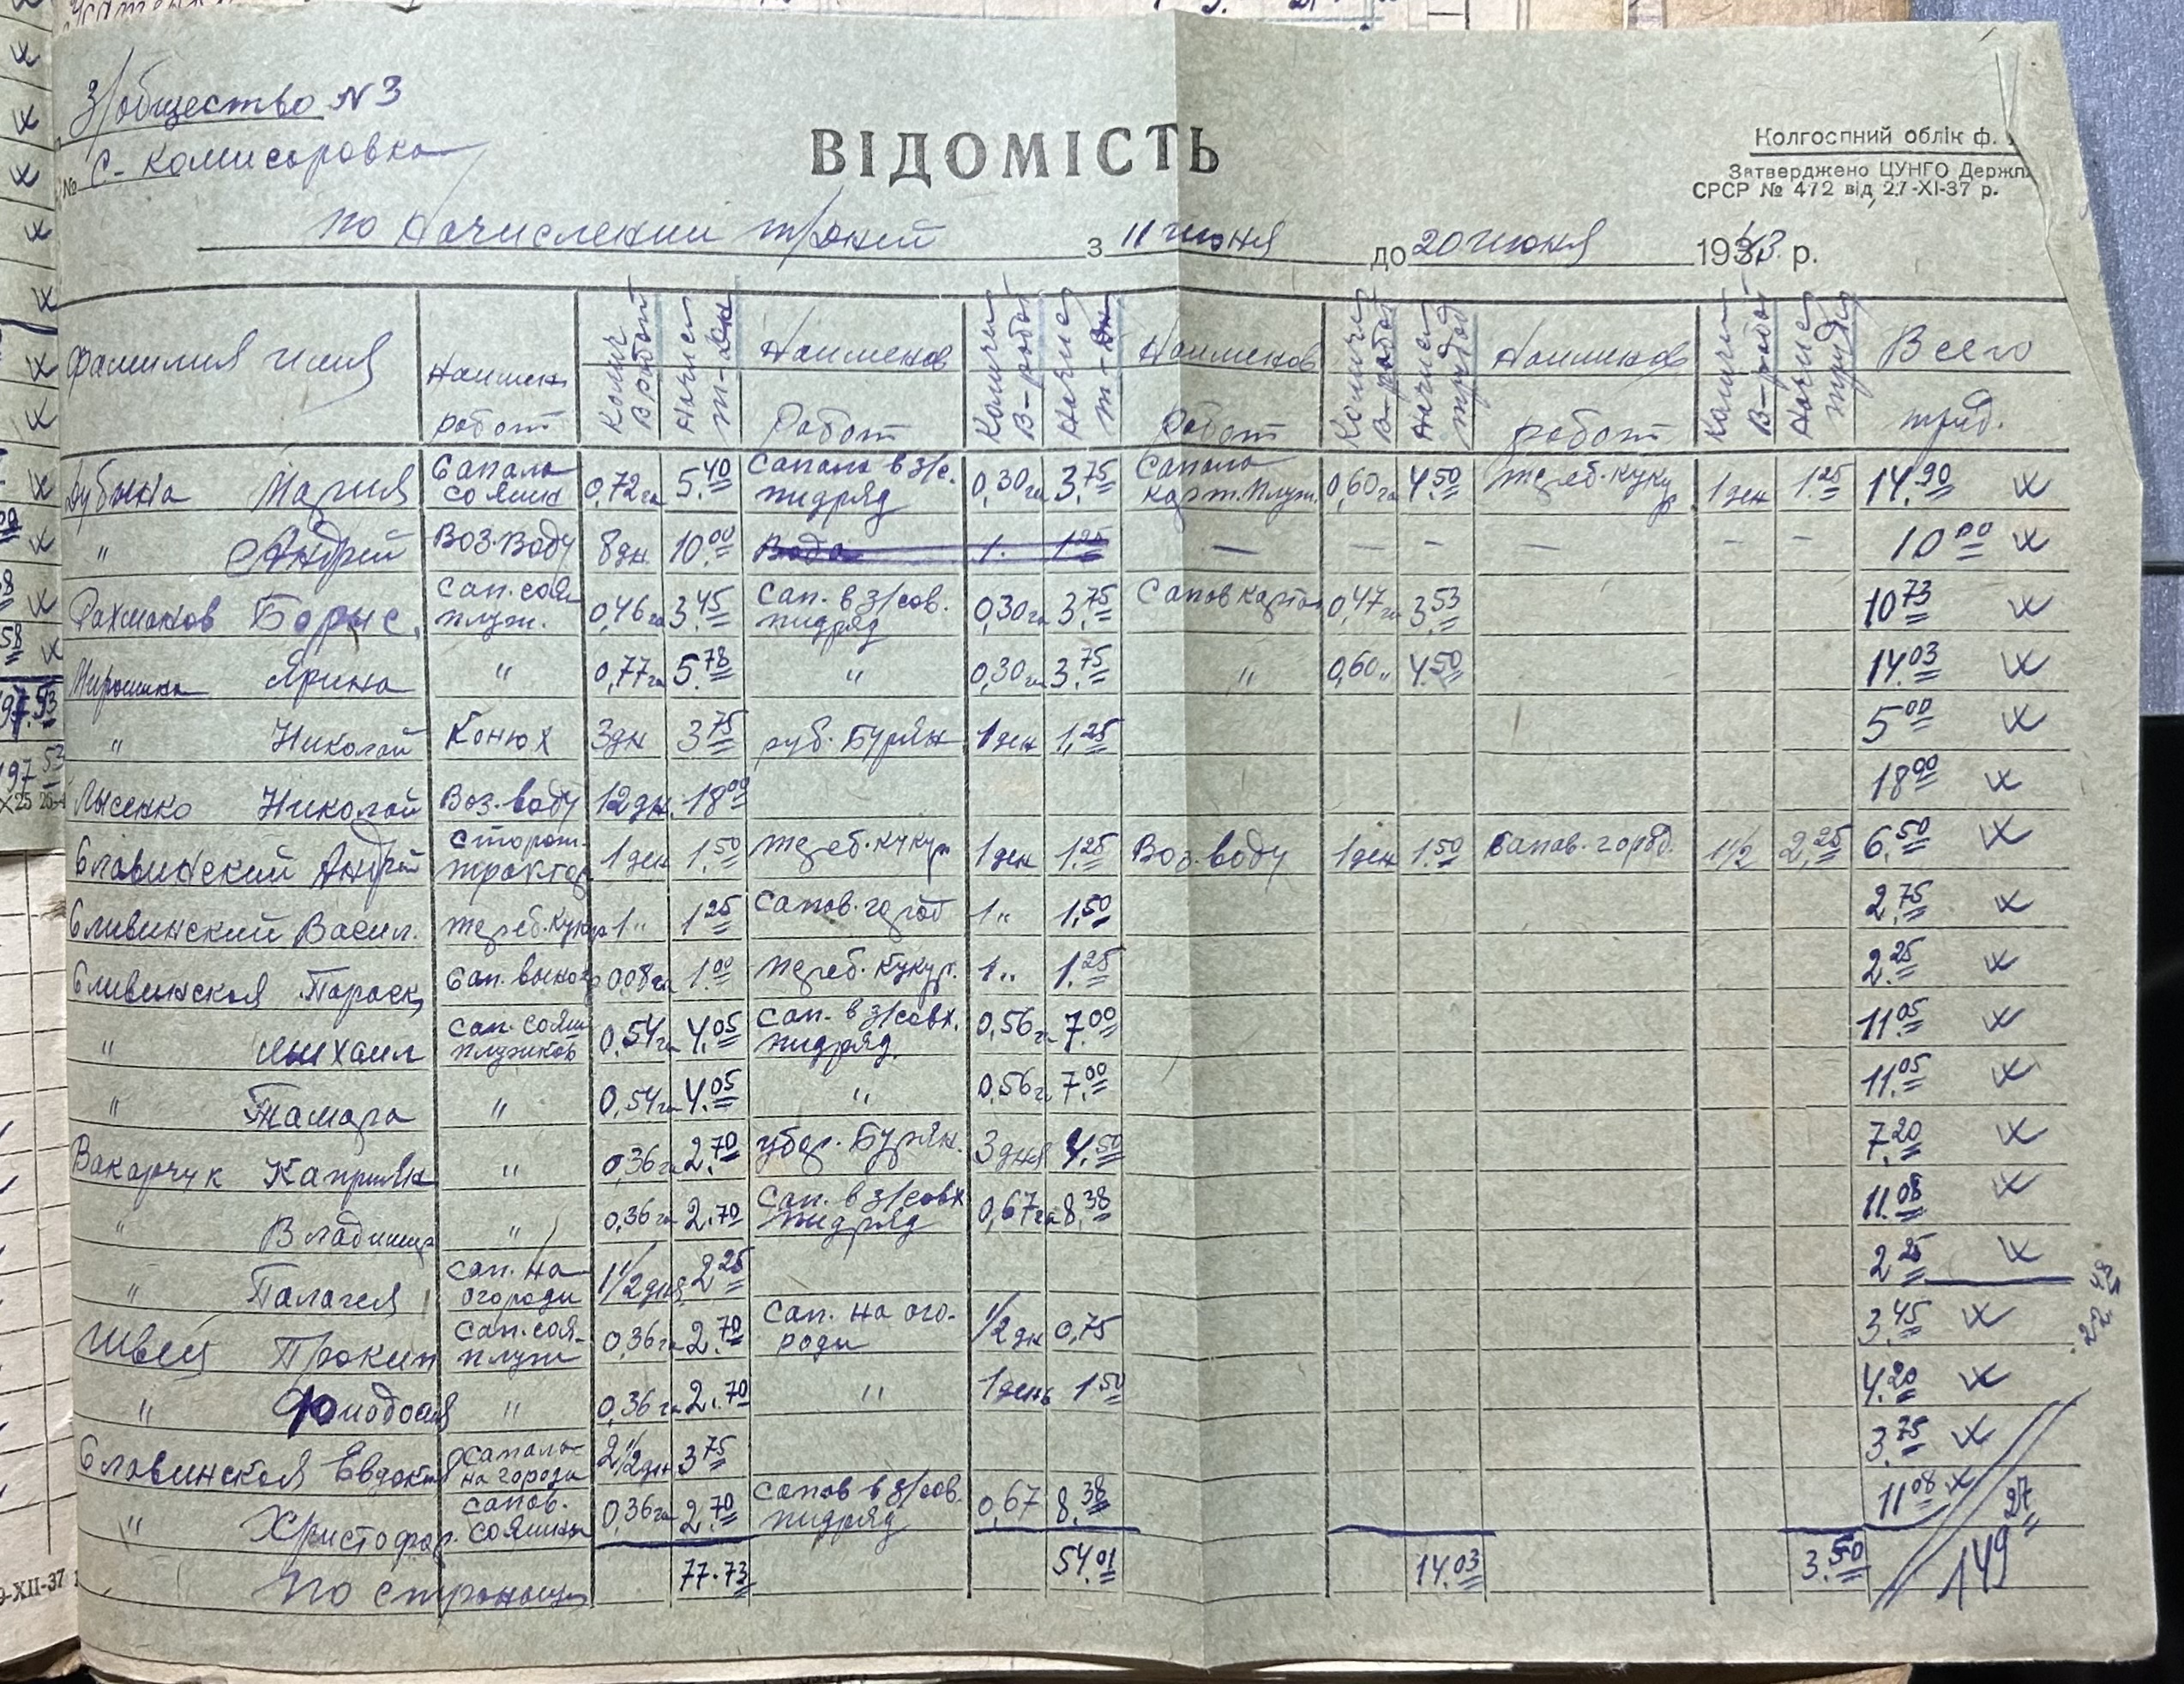 З/общество №3
№ С- Комисаровка
ВІДОМІСТЬ
Колгоспний облік ф.
Затверджено ЦУНГО Держпл
СРСР № 472 від 27-XI-37 р.
по начислении т/дней з 11 июня до 20 июня 1943 р.
Фамилия имя Наимен. работ Колич. В работ Начисл т-дн Наименов Работ Количе В-работ Начис т-дн Наименов Работ Количе в-работ Начисл трудод Наименов работ Количе В-работ Начис трудд Всего труд.
Дубына Мария Сапала сояшн 0,72 га 5.40 Сапала в з/с. пидряд 0,30 га 3.75 Сапала карт. плуж. 0,60 га 4.50 жереб. куку 1 ден 1.25 14.90
" Андрей Воз. воду 8 дн. 10.00 Вода 1. 1.25 — — – — – – 10.00
Рахманов Борыс. Сап. соя плуж. 0,46 га 3.45 Сап. в з/сов. пидряд 0,30 га 3.75 Сапов картоп 0,47 га 3.53 10.73
Мирошник Ярина " 0,77 га 5.78 " 0,30 га 3.75 " 0,60 " 4.50 14.03
" Николай Конюх 3 дн 3.75 руб. Бурян 1 ден 1.25 5.00
Лысенко Николай Воз. воду 12 дн. 18.00 18.00
Славинский Андрей Сторож. трактор 1 ден 1.50 жереб. кукур 1 ден 1.25 Воз. воду 1 ден 1.50 Сапов. город. 1 1/2 2.25 6.50
Сливинский Васил. жереб. кукур 1 " 1.25 Сапов. город 1 " 1,50 2.75
Сливинская Параск. Сап. 0,08 га 1.00 жереб. кукур. 1 " 1.25 2.25
" Михаил Сап. сояш плужков 0,54 га 4.05 Сап. в з/совх. пидряд. 0,56 га 7.00 11.05
" Тамара " 0,54 га 4.05 " 0,56 г 7.00 11.05
Вакарчук " 0,36 га 2.70 убор. Бурян. 3 дня 4.50 7.20
" Владимир " 0,36 га 2.70 Сап. в з/совх пидряд 0,67 га 8.38 11.08
" Палагея Сап. на огороди 1 1/2 дня 2.25 2.25
Швец Прокип Сап. соя- плуж 0,36 га 2.70 Сап. на ого- роди 1/2 дн 0,75 3.45
" " 0,36 га 2.70 " 1 день 1.50 4.20
Славинская Евдокия Сапала на городи 2 1/2 ден 3.75 3.75
" Христофор. Сапов. сояшны 0,36 га 2.70 Сапов в з/сов. пидряд 0,67 8.38 11.08
По страници 77.73 54.01 14.03 3.50 149.27